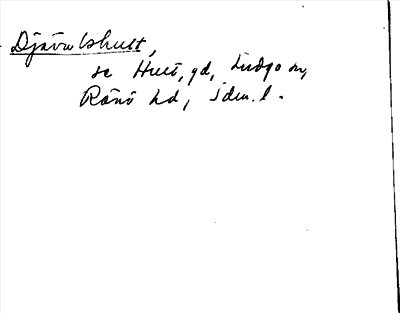 Djävulshult,
se Hult, gd, Lidgo sn,
Rönö hd, Söm. l.